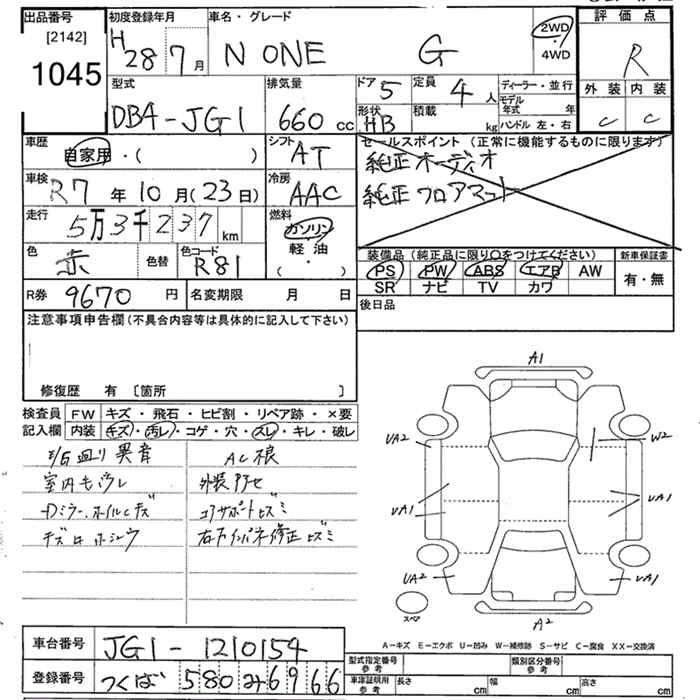 出品番号 初度登録年月 車名・グレード 評価点
[2142] H28 7月 N ONE G 2WD・4WD R
1045
型式 排気量 ドア 5 定員 4人 ディーラー・並行 外装 内装
DBA-JG1 660cc 形状 HB 積載 kg モデル年式 年 C C
ハンドル 左・右
車歴 自家用・( ) シフト AT セールスポイント (正常に機能するものに限ります)
車検 R7年10月(23日) 冷房 AAC 純正オーディオ
純正フロアマット
走行 5万3千237km 燃料 ガソリン
軽油
( )
色 赤 色替 色コード R81 装備品 (純正品に限り○をつけてください) 新車保証書
PS PW ABS エアB AW 有・無
SR ナビ TV カワ
R券 9670円 名変期限 月 日 後日品
注意事項申告欄 (不具合内容等は具体的に記入して下さい)
修復歴 有 〔箇所 〕
検査員 FW キズ・飛石・ヒビ割・リペア跡・×要
記入欄 内装 キズ・汚レ・コゲ・穴・スレ・キレ・破レ
E/G廻り異音 AC根
外装アセ
コアサポートヒズミ
右インパネ修正ヒズミ
A1
UA2 W2
UA1 UA1
UA2 UA1
スペア A2
A-キズ E-エクボ U-凹み W-補修跡 S-サビ C-腐食 XX-交換済
車台番号 JG1-1210154
型式指定番号 参考 類別区分番号 参考
登録番号 つくば 580 み 6966
車庫証明用 参考 長さ cm 幅 cm 高さ cm